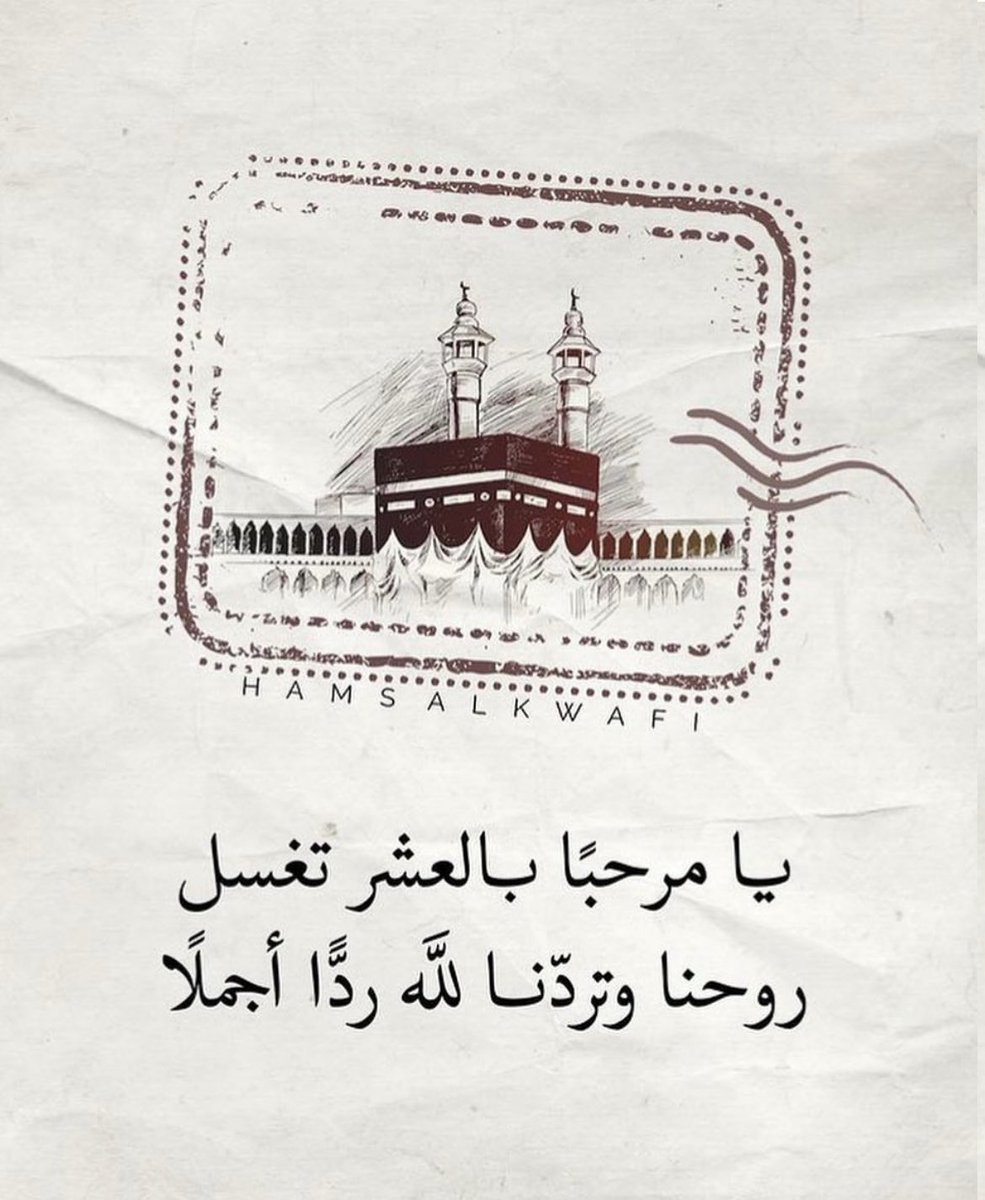 HAMSALKWAFI
يا مرحبًا بالعشر تغسل
روحنا وتردّنا للَّه ردًّا أجملًا